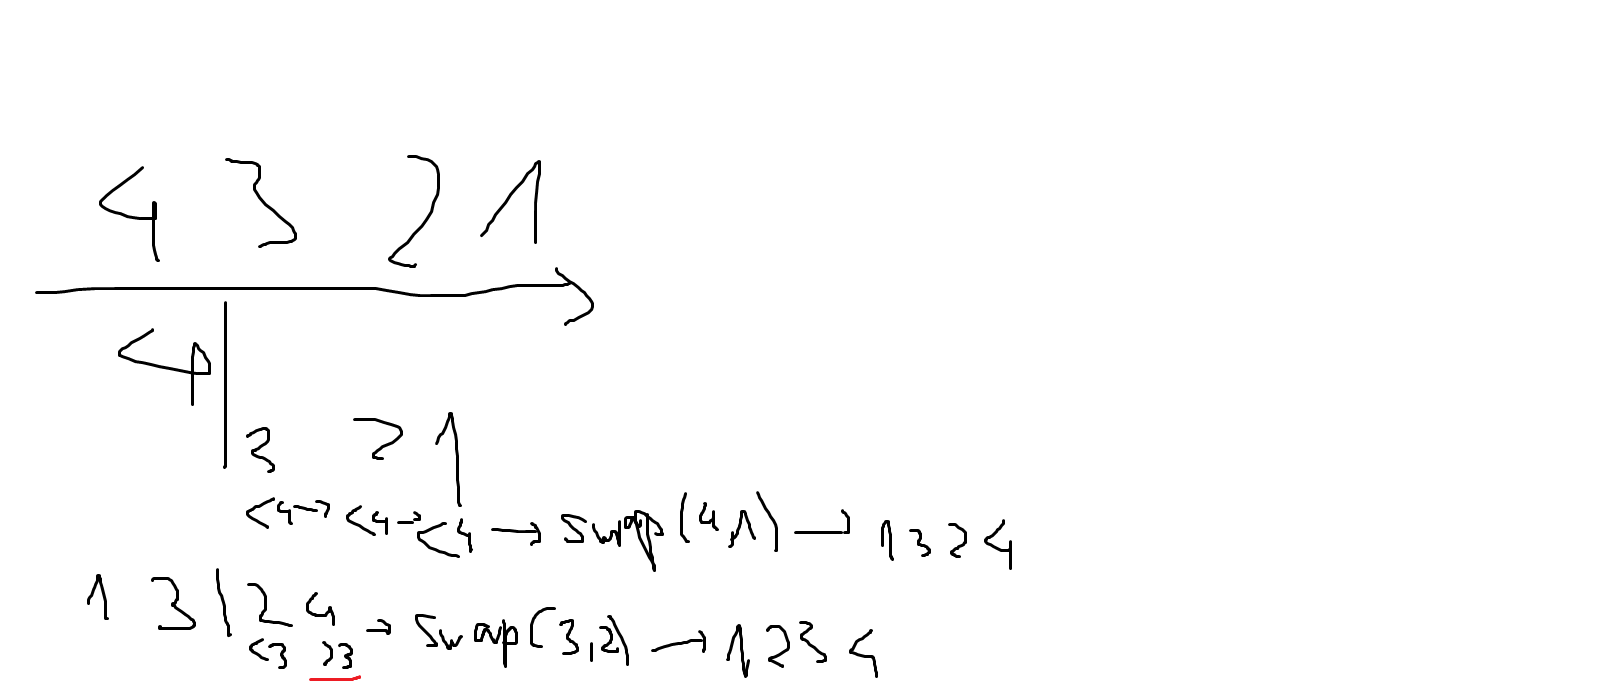 4 3 2 1
4
3 2 1
<4→ <4→ <4 → swap(4,1) → 1 3 2 4
1 3 | 2 4 → swap(3,2) → 1 2 3 4
<3 >3